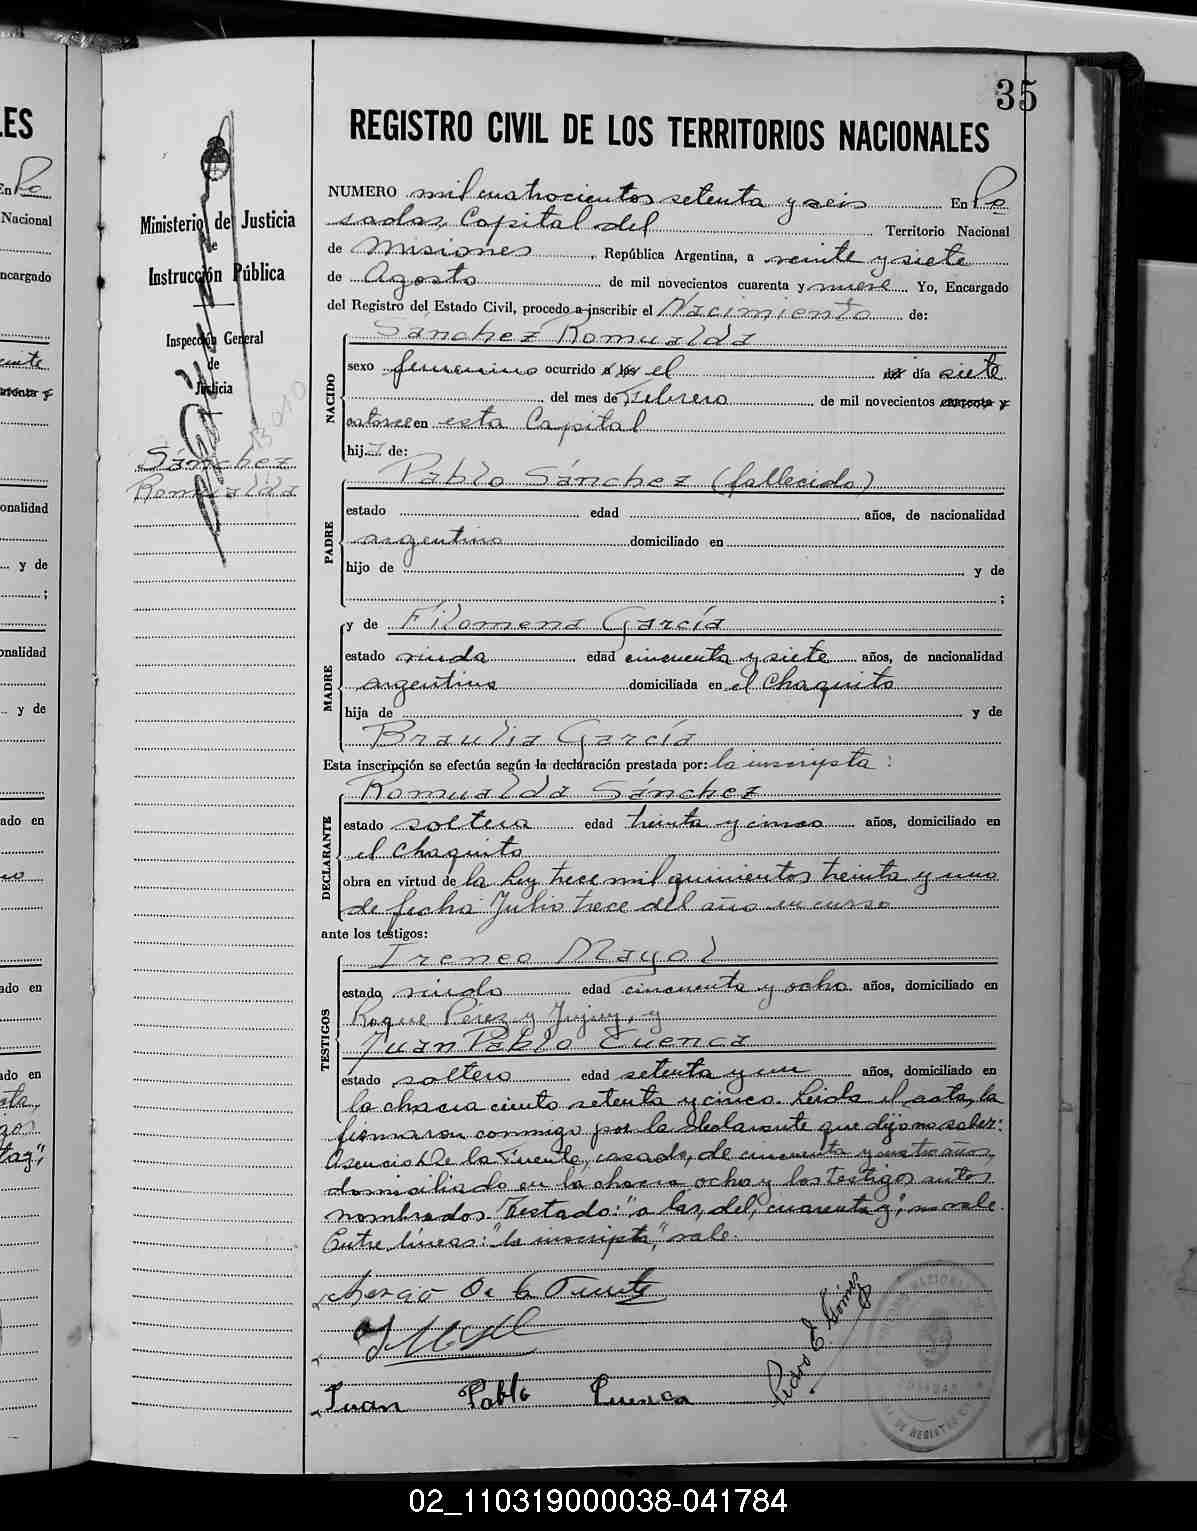 35
REGISTRO CIVIL DE LOS TERRITORIOS NACIONALES
Ministerio de Justicia
de
Instrucción Pública
Inspección General
de
Justicia
Sánchez
Romualda
NUMERO mil cuatrocientos setenta y seis En Po
sadas, Capital del Territorio Nacional
de Misiones, República Argentina, a veinte y siete
de Agosto de mil novecientos cuarenta y nueve Yo, Encargado
del Registro del Estado Civil, procedo a inscribir el Nacimiento de:
NACIDO
Sánchez Romualda
sexo femenino ocurrido a las el del día siete
del mes de Febrero de mil novecientos cuarenta y
catorce en esta Capital
hija de:
PADRE
Pablo Sánchez (fallecido)
estado edad años, de nacionalidad
argentino domiciliado en
hijo de y de
;
MADRE
y de Filomena García
estado viuda edad cincuenta y siete años, de nacionalidad
argentina domiciliada en el Chaquito
hija de y de
Braulia García
Esta inscripción se efectúa según la declaración prestada por: la inscripta:
DECLARANTE
Romualda Sánchez
estado soltera edad treinta y cinco años, domiciliado en
el Chaquito
obra en virtud de la Ley trece mil quinientos treinta y uno
de fecha Julio trece del año en curso
ante los testigos:
TESTIGOS
Ireneo Mayol
estado viudo edad cincuenta y ocho años, domiciliado en
Roque Pérez y Jujuy, y
Juan Pablo Cuenca
estado soltero edad setenta y un años, domiciliado en
la chacra ciento setenta y cinco. Leida el acta, la
firmaron conmigo por la declarante que dijo no saber:
Asencio De la Fuente, casado, de cincuenta y cuatro años,
domiciliado en la chacra ocho y los testigos antes
nombrados. Testado: "a las, del, cuarenta y", no vale.
Entre líneas: "la inscripta", vale.
De la Fuente
Juan Pablo Cuenca
Pedro E. Gómez
LES
En Po
Nacional
ncargado
onalidad
y de
;
onalidad
y de
ado en
ado en
ado en
02_110319000038-041784